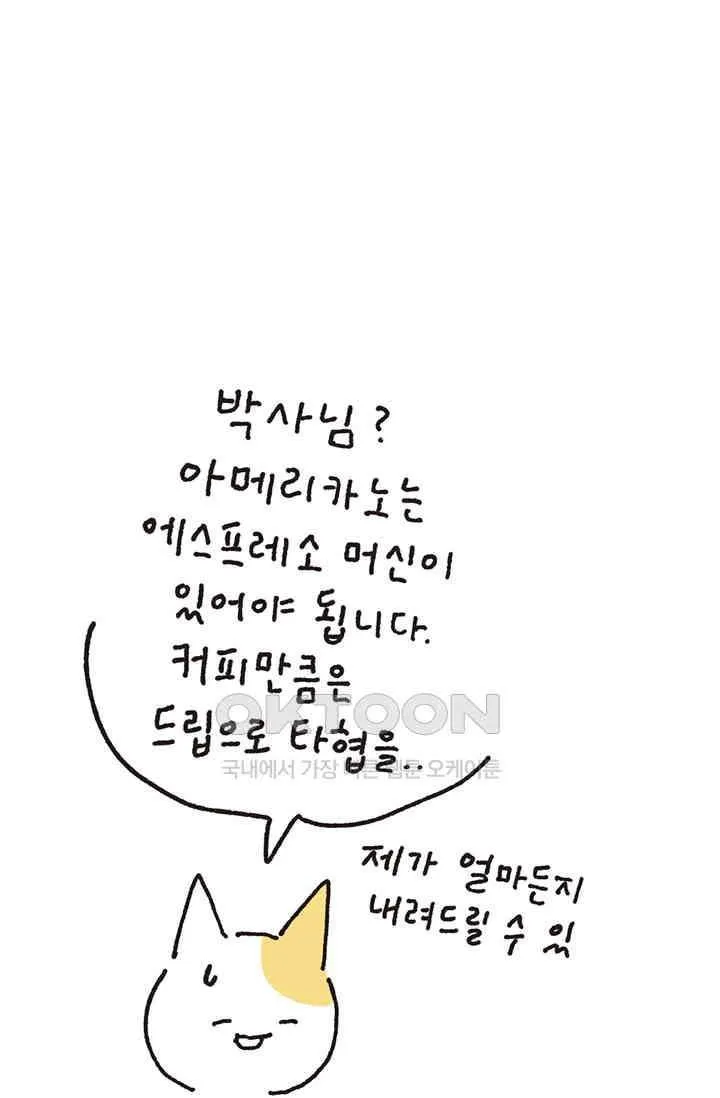 박사님?
아메리카노는
에스프레소 머신이
있어야 됩니다.
커피만큼은
OKTOON
드립으로 타협을..
국내에서 가장 빠른 웹툰 오케이툰
제가 얼마든지
내려드릴 수 있